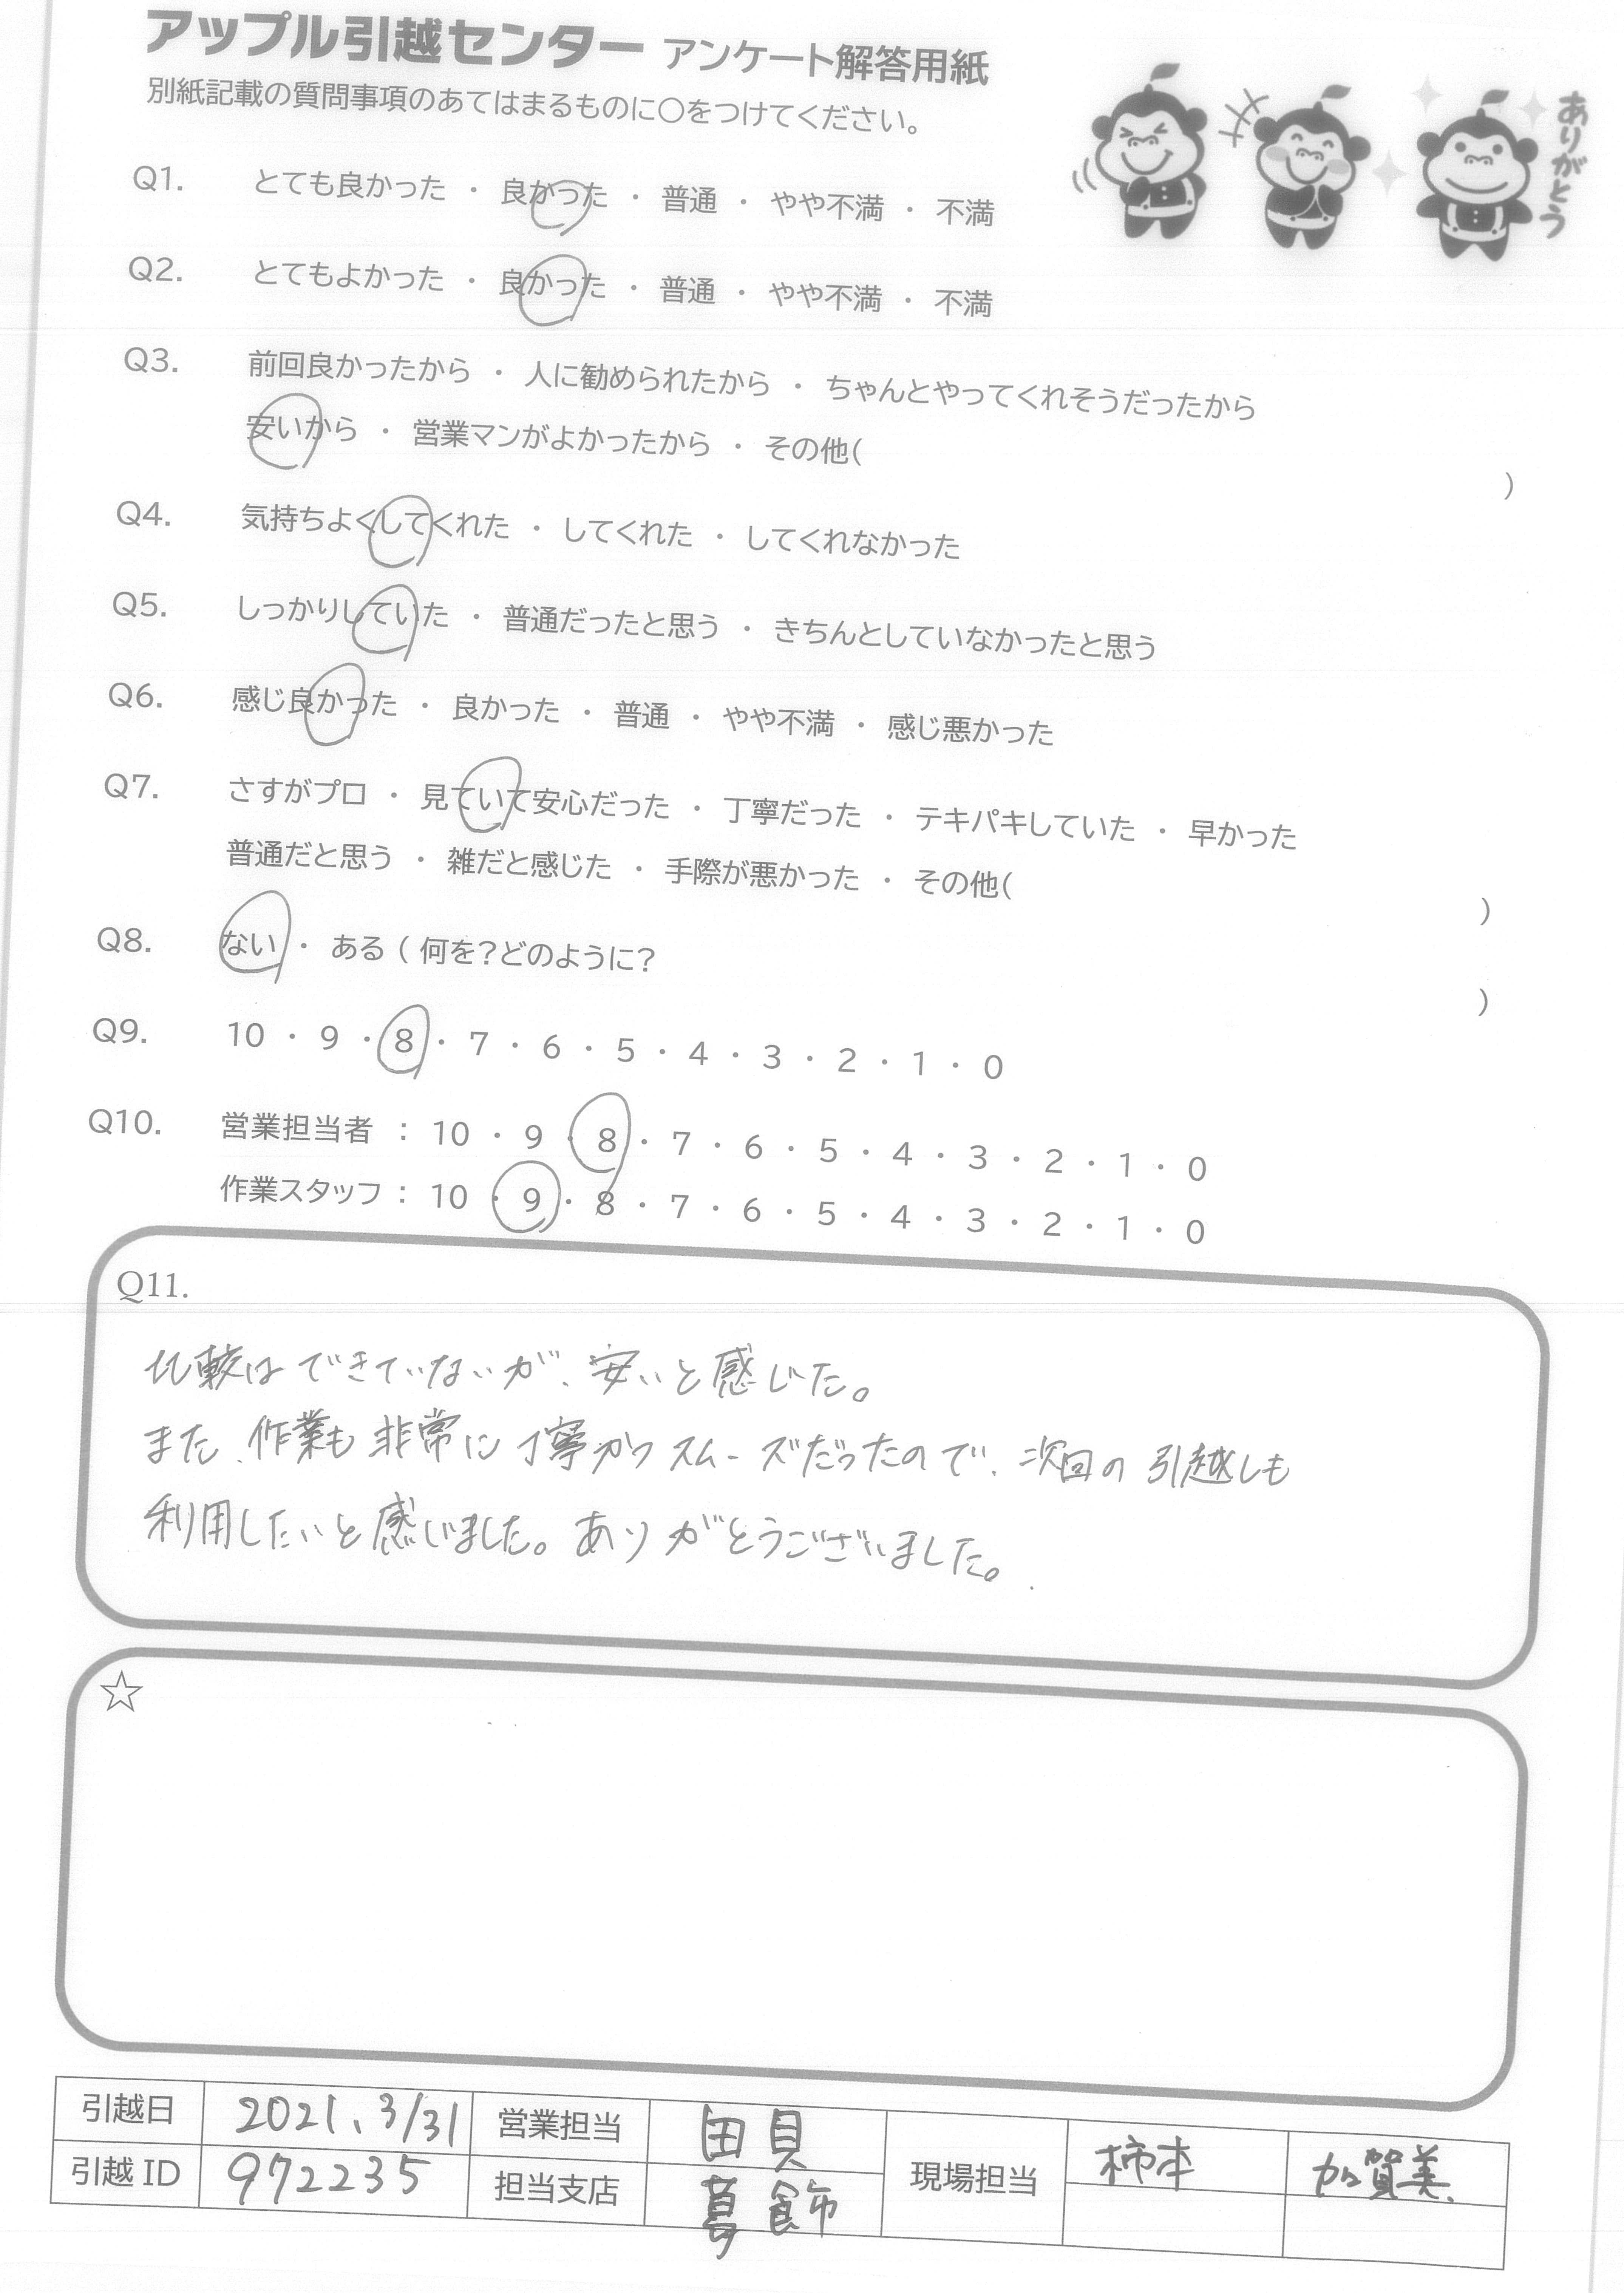 アップル引越センター アンケート解答用紙
別紙記載の質問事項のあてはまるものに〇をつけてください。
ありがとう
Q1. とても良かった ・ 良かった ・ 普通 ・ やや不満 ・ 不満
Q2. とてもよかった ・ 良かった ・ 普通 ・ やや不満 ・ 不満
Q3. 前回良かったから ・ 人に勧められたから ・ ちゃんとやってくれそうだったから
安いから ・ 営業マンがよかったから ・ その他( )
Q4. 気持ちよくしてくれた ・ してくれた ・ してくれなかった
Q5. しっかりしていた ・ 普通だったと思う ・ きちんとしていなかったと思う
Q6. 感じ良かった ・ 良かった ・ 普通 ・ やや不満 ・ 感じ悪かった
Q7. さすがプロ ・ 見ていて安心だった ・ 丁寧だった ・ テキパキしていた ・ 早かった
普通だと思う ・ 雑だと感じた ・ 手際が悪かった ・ その他( )
Q8. ない ・ ある ( 何を?どのように? )
Q9. 10 ・ 9 ・ 8 ・ 7 ・ 6 ・ 5 ・ 4 ・ 3 ・ 2 ・ 1 ・ 0
Q10. 営業担当者 : 10 ・ 9 ・ 8 ・ 7 ・ 6 ・ 5 ・ 4 ・ 3 ・ 2 ・ 1 ・ 0
作業スタッフ : 10 ・ 9 ・ 8 ・ 7 ・ 6 ・ 5 ・ 4 ・ 3 ・ 2 ・ 1 ・ 0
Q11.
比較はできていないが、安いと感じた。
また、作業も非常に丁寧かつスムーズだったので、次回の引越しも
利用したいと感じました。ありがとうございました。
☆
引越日 2021、3/31 営業担当 田貝 現場担当 柿本 加賀美
引越ID 972235 担当支店 葛飾